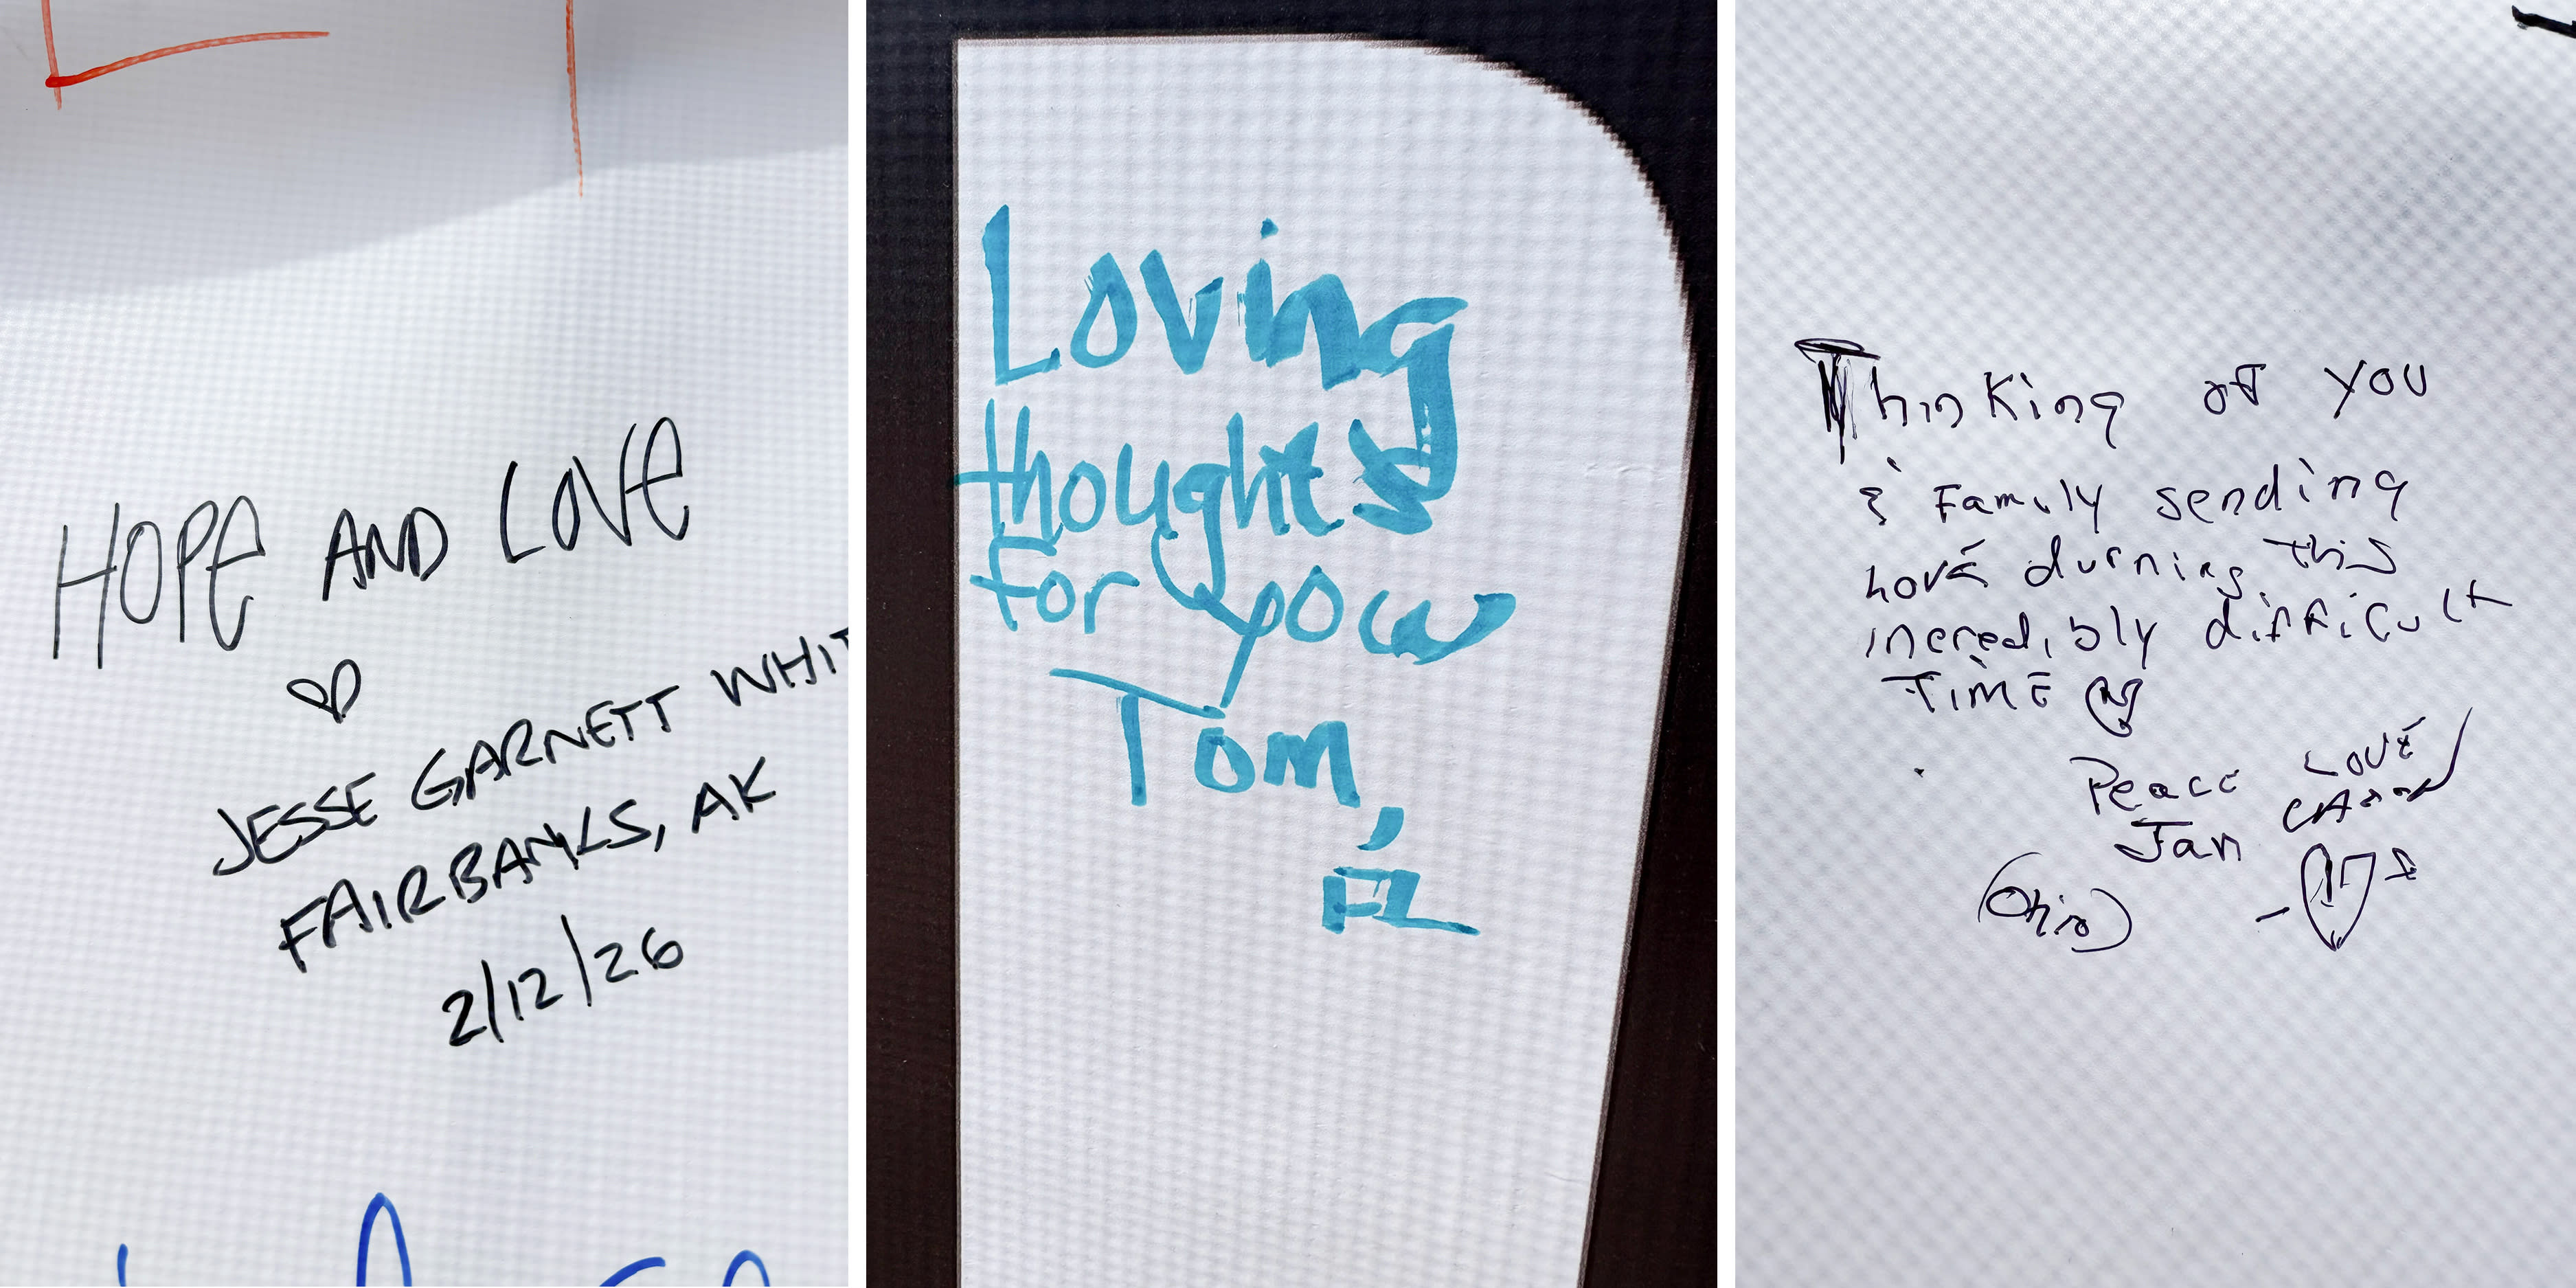 HOPE AND LOVE
JESSE GARNETT WHIT
FAIRBANKS, AK
2/12/26
Loving
thoughts
for you
Tom,
FL
Thinking of you
& Family sending
Love durning this
incredibly difficult
TIME
Peace Love
Jan
(Ohio)